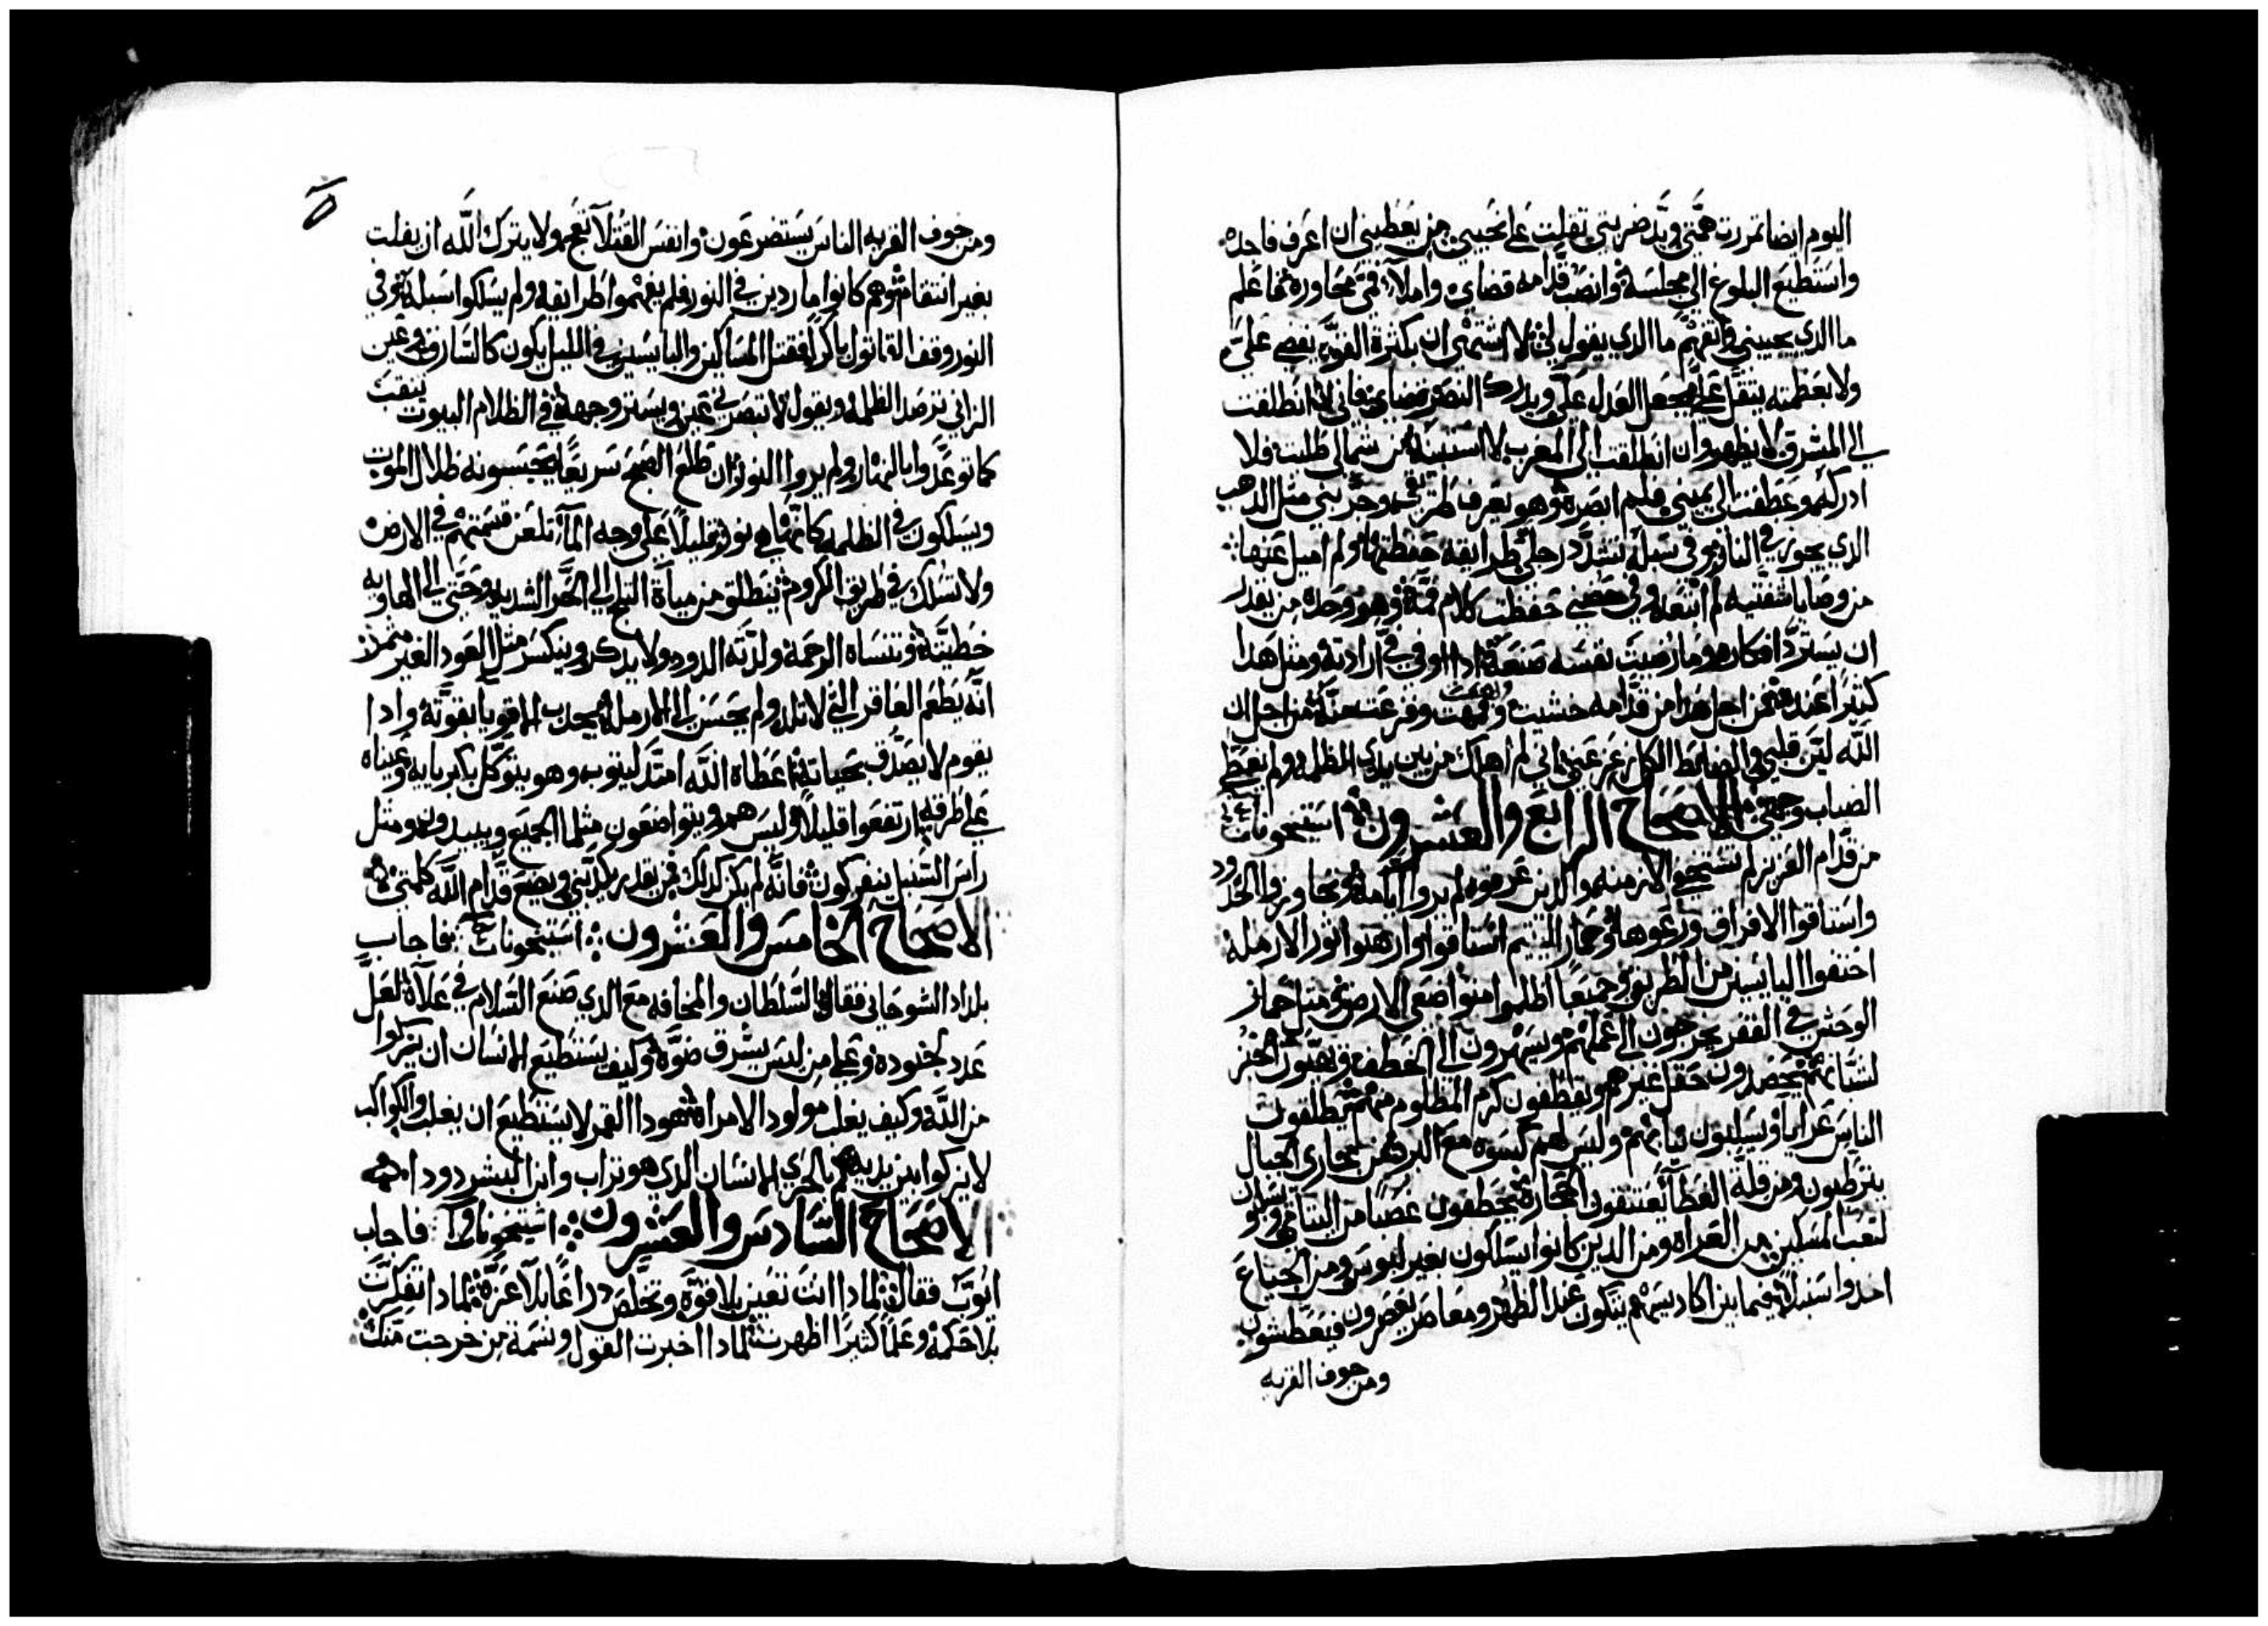 اليوم ايضا تمررت همتي ويد ضربتي تقلت علي نحيبي من يعطيني ان اعرف فاجده
واستطيع البلوغ الي مجلسه وانصب قدامه قضاي واملا فمي محاوره فاعلم
ما الدي يجيبني واتفهم ما الدي يقول لي لا اشتهي ان بكثرة القوه يقضي علي
ولا بعظمته يتقل علي يجعل العدل علي ويدرك النصر قضاي فاني ان انطلقت
الي المشرق لا يظهر وان انطلقت الي المغرب لا استبينه عن شمالي طلبت فلا
ادركه وعطفت الي يميني فلم ابصره وهو يعرف طريقي وجربني مثل الدهب
الدي يجوز في النار وفي سبله تشدد رجلي طرايقه حفظتها ولم اميل عنها
من وصايا شفتيه لم ابتعد وفي حضني حفظت كلام فمه وهو وحده من يقدر
ان يسترد افكاره وما رضيت نفسه صنعه ادا اوفي في ارادته ومثل هدا
كثيرا عنده فمن اجل هدا من قدامه خشيت وفزعت منه من اجل ان
الله لين قلبي والضابط الكل عني لم اهلك من بين يدي الظلمه ولم يغطي
الضباب وجهي الاصحاح الرابع والعشرون استيحونات
من قدام العزيز لم تستخفي الازمنه والدين عرفوه لم يروا ايامه تجاوزوا الحدود
واستاقوا الافراق ورعوها وحمار اليتيم استاقوا وارهنوا ثور الارمله
اختفوا البايسين من الطريق وجميعا اظلموا متواضعي الارض مثل حمار
الوحش في القفر يخرجون الي عملهم ويسهرون الي الخطف ويهيون الخبز
لشبابهم يحصدون حقل غيرهم ويقطفون كرم المظلوم منهم يطلقون
الناس عرايا ويسلبون ثيابهم وليس لهم كسوه مع البرد من مجاري الجبال
يترطبون ومن قلة الغطا يعتنقون الحجاره يخطفون غصبا من اليتامي ويسلبون
لتعب المسكين من العراه ومن الدين كانوا يسلكون بغير لبوس ومن الجياع
اخدوا سنبلا فيما بين اكاديسهم يتكون عند الظهر ومعاصر يعصرون فيعطشون
ومن جوف القريه
ومن جوف القريه الناس يستضرعون وانفس القتلا تعج ولا يترك الله ان يفلت
بغير انتقام وهم كانوا ماردين في النور فلم يفهموا طرايقه ولم يسلكوا سبله في
النور وقف القاتول باكرا فقتل المساكين والبايسين وفي الليل يكون كالسارق وفي عين
الزاني ترصد الظلمه ويقول لا تبصرني عين ويستر وجهه في الظلام البيوت ينقب
كما توعدوا بالنهار ولم يروا النور ان طلع الصبح سريعا يحتسبونه ظلال الموت
ويسلكون في الظلمه كانها هي نور قليلا علي وجه الما تلعن قسمتهم في الارض
ولا تسلك في طريق الكروم ينطلق من مياة التلج الي الحر الشديد وحتي الي الهاويه
خطيته وتنساه الرحمه ولدته الدود ولا يدكر وينكسر مثل العود الغير متمر
انه يطعم العاقر التي لا تلد ولم يحسن الي الارمله يجدب الاقويا بقوته وادا
يقوم لا يصدق بحياته اعطاه الله امتد ليتوب وهو يتوكل باكبريايه وعيناه
علي طرقه ارتفعوا قليلا وليس هم ويتواضعون مثلما الجميع ويبيدون ومثل
راس السنبل ينفركون فانه لم يكن كدلك فمن يقدر يكدبني ويضع قدام الله كلمتي
الاصحاح الخامس والعشرون استيحونات فاجاب
بلداد الشوحاني فقال السلطان والمخافه مع الدي صنع السلام في علاه لعل
عدد لجنوده وعلي من ليس يشرق ضوه وكيف يستطيع الانسان ان يتزكوا
من الله وكيف يغلب مولود الامراه هودا القمر لا يستطيع ان يغلب والكواكب
لا يزكوا بين يديه كم بالحري الانسان الدي هو تراب وابن البشر دودا
الاصحاح السادس والعشرون استيحونات فاجاب
ايوب فقال لمادا انت تعين بلا قوة وتخلص دراعا بلا عزة لمادا تفكرت
بلا حكمه وعلما كثيرا اظهرت لمادا اخبرت القول ونسمة من خرجت منك